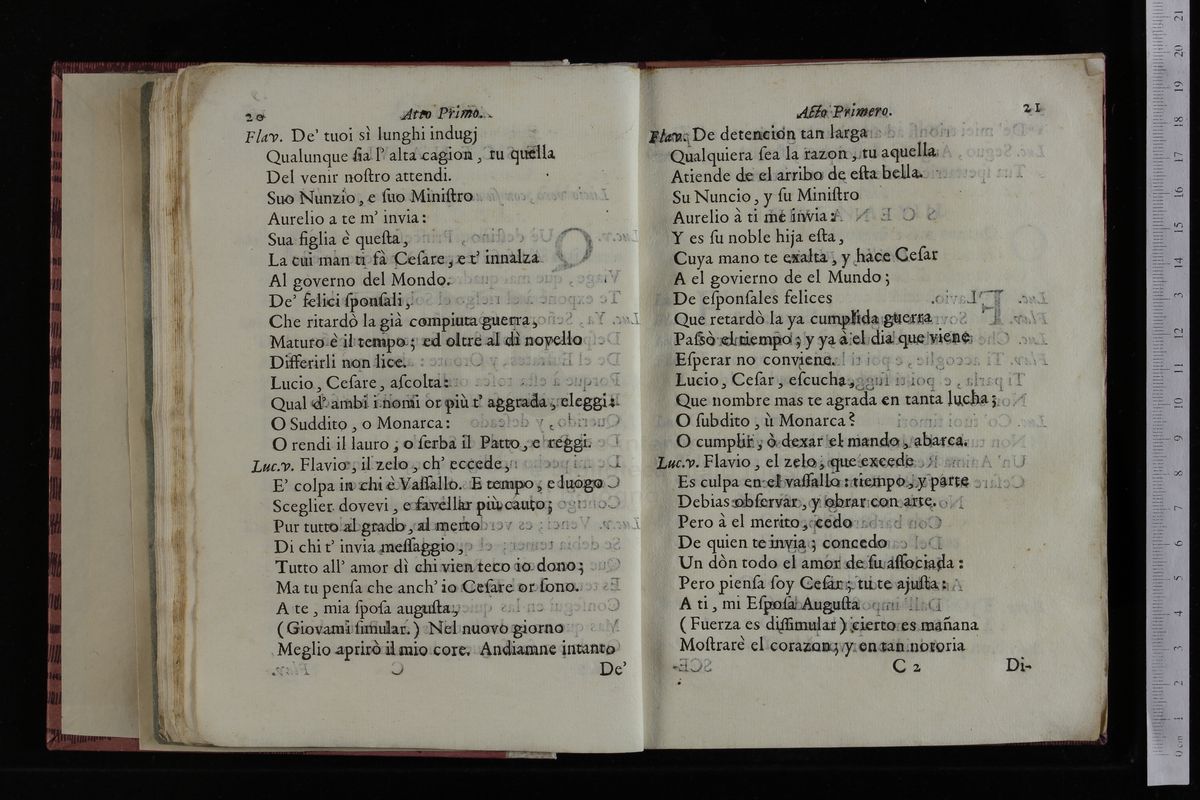 20 Atto Primo.
Flav. De' tuoi sì lunghi indugj
Qualunque ſia l' alta cagion, tu quella
Del venir noſtro attendi.
Suo Nunzio, e ſuo Miniſtro
Aurelio a te m' invia:
Sua figlia è queſta,
La cui man ti fà Ceſare, e t' innalza
Al governo del Mondo.
De' felici ſponſali,
Che ritardò la già compiuta guerra,
Maturo è il tempo; ed oltre al dì novello
Differirli non lice.
Lucio, Ceſare, aſcolta:
Qual d' ambi i nomi or più t' aggrada, eleggi:
O Suddito, o Monarca:
O rendi il lauro, o ſerba il Patto, e reggi.
Luc.v. Flavio, il zelo, ch' eccede,
E' colpa in chi è Vaſſallo. E tempo, e luogo
Sceglier dovevi, e favellar più cauto;
Pur tutto al grado, al merto
Di chi t' invia meſſaggio,
Tutto all' amor dì chi vien teco io dono;
Ma tu penſa che anch' io Ceſare or ſono.
A te, mia ſpoſa auguſta,
(Giovami ſimular.) Nel nuovo giorno
Meglio aprirò il mio core. Andiamne intanto
C De'
Acto Primero. 21
Flav. De detencion tan larga
Qualquiera ſea la razon, tu aquella
Atiende de el arribo de eſta bella.
Su Nuncio, y ſu Miniſtro
Aurelio à ti me invia:
Y es ſu noble hija eſta,
Cuya mano te exalta, y hace Ceſar
A el govierno de el Mundo;
De eſponſales felices
Que retardò la ya cumplida guerra
Paſsò el tiempo; y ya à el dia que viene
Eſperar no conviene.
Lucio, Ceſar, eſcucha,
Que nombre mas te agrada en tanta lucha;
O ſubdito, ù Monarca?
O cumplir, ò dexar el mando, abarca.
Luc.v. Flavio, el zelo, que excede
Es culpa en el vaſſallo: tiempo, y parte
Debias obſervar, y obrar con arte.
Pero à el merito, cedo
De quien te invia; concedo
Un dòn todo el amor de ſu aſſociada:
Pero pienſa ſoy Ceſar; tu te ajuſta:
A ti, mi Eſpoſa Auguſta
(Fuerza es diſſimular) cierto es mañana
Moſtrarè el corazon; y en tan notoria
C 2 Di-